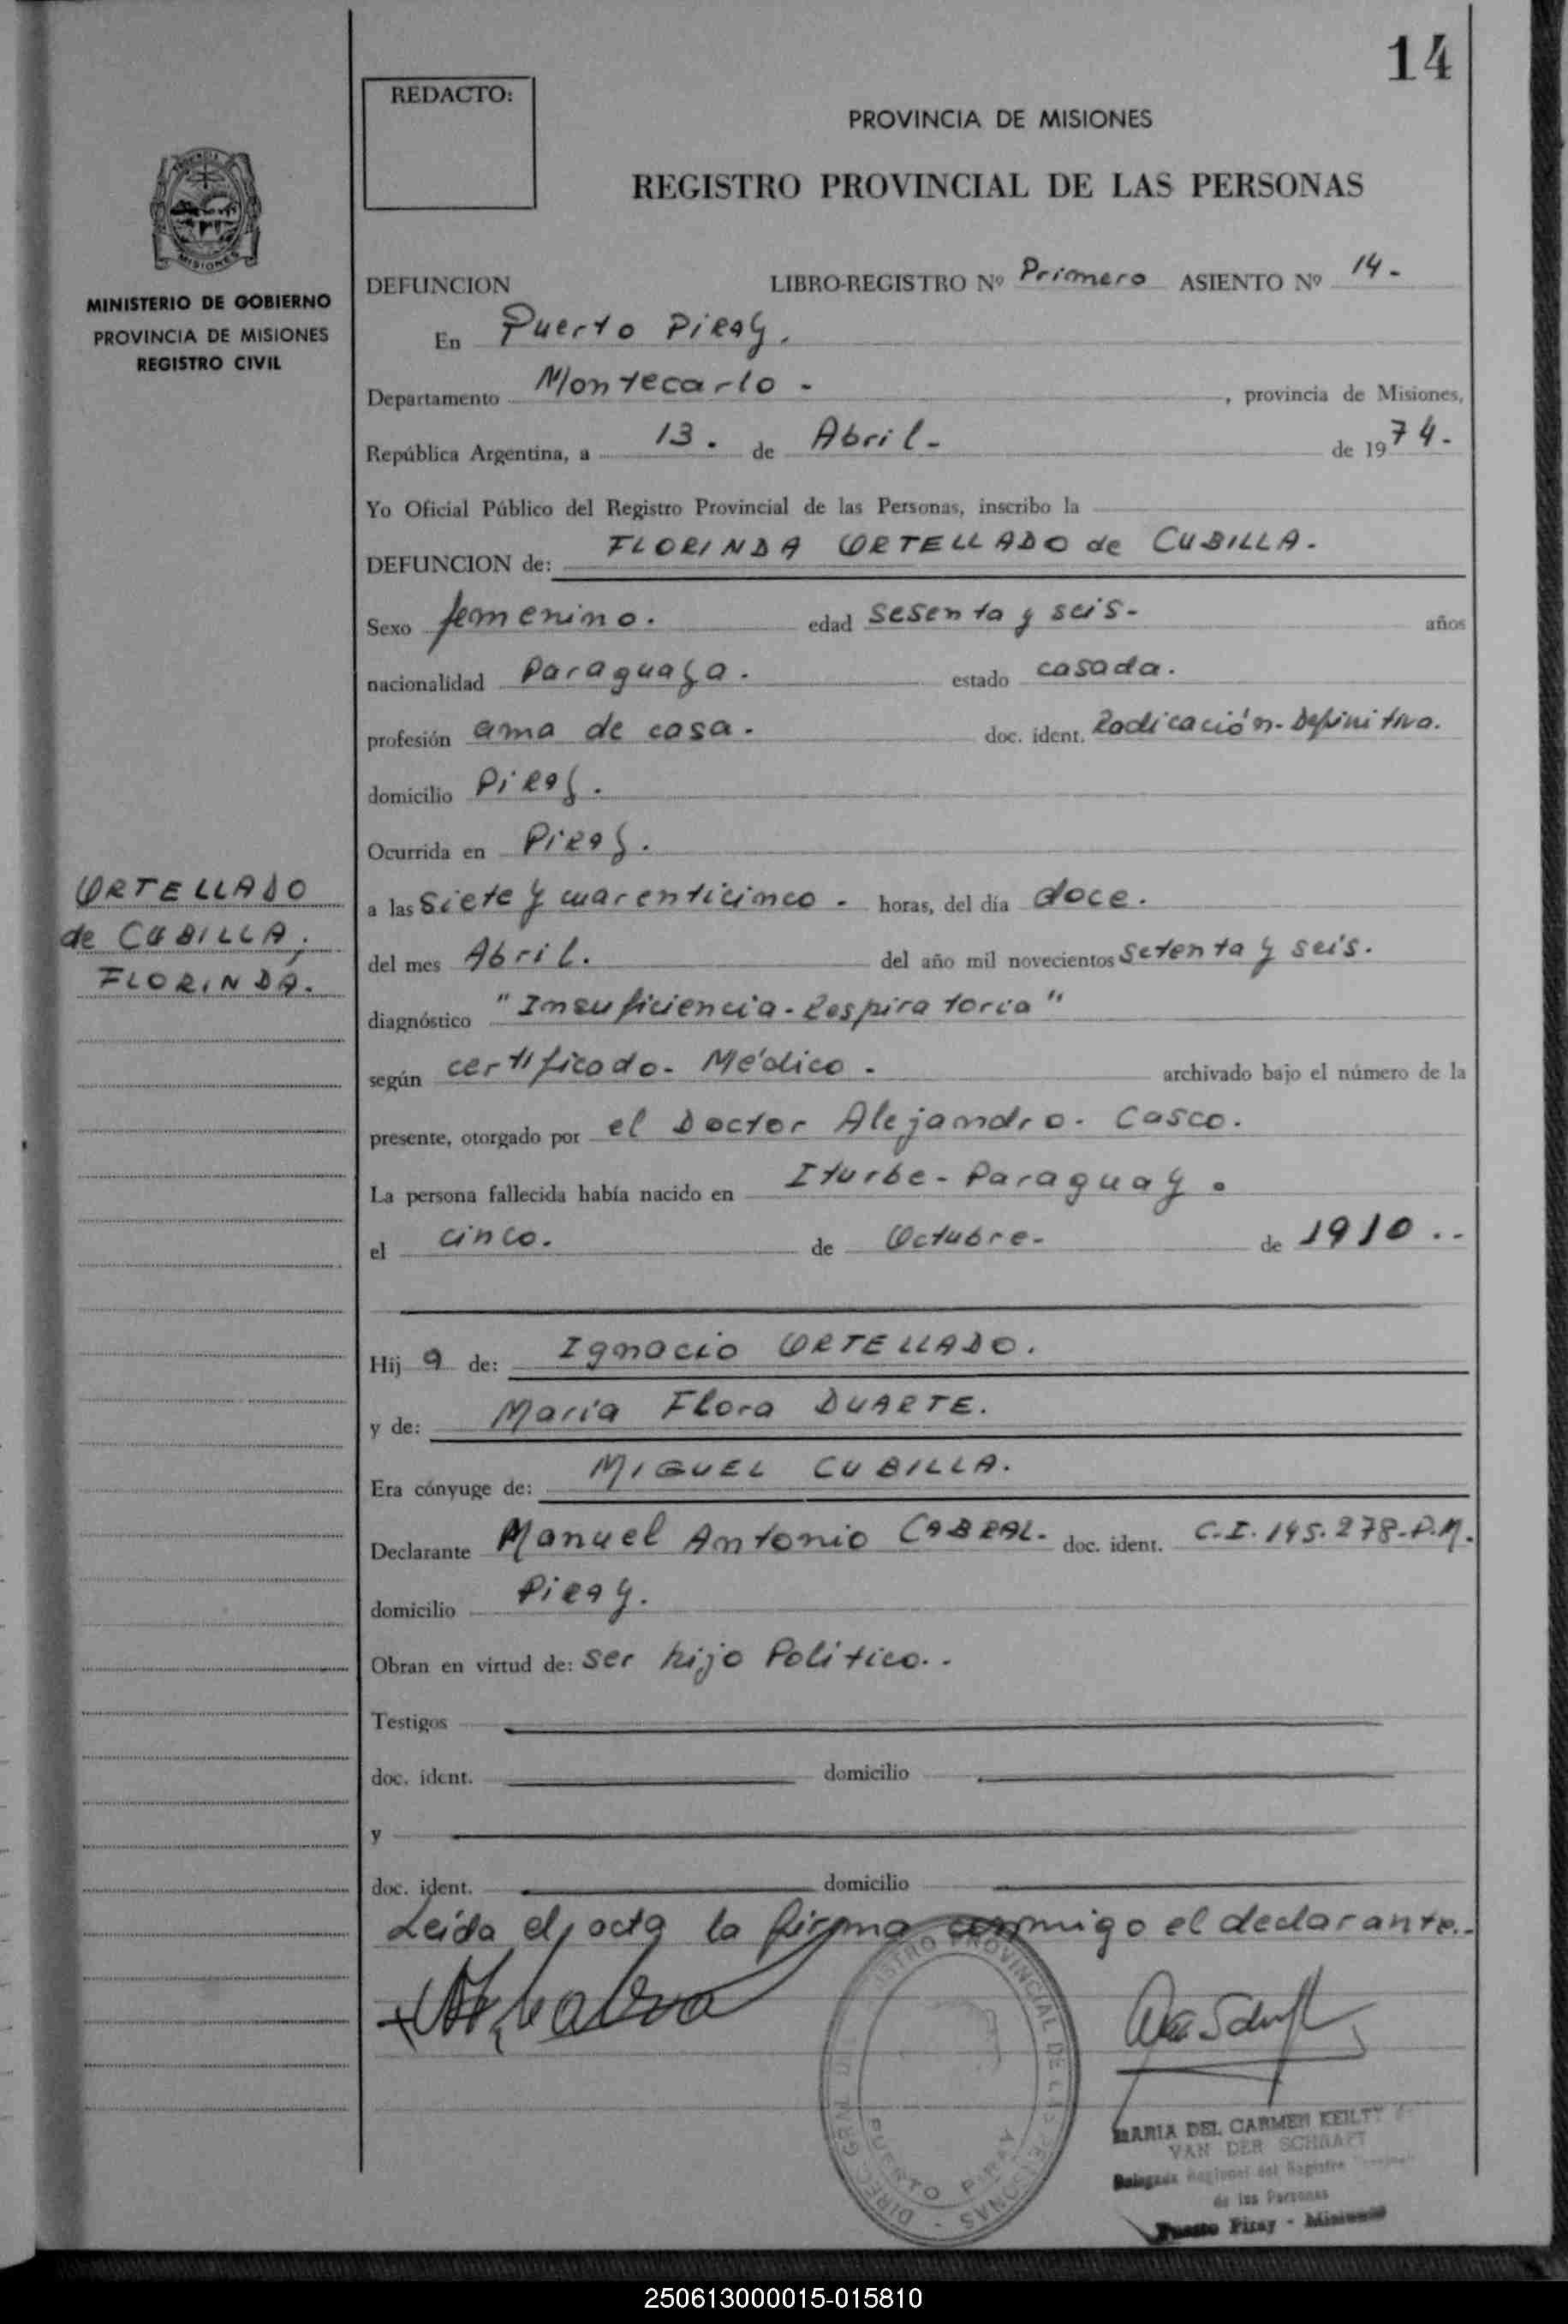 14
REDACTO:
PROVINCIA DE MISIONES
REGISTRO PROVINCIAL DE LAS PERSONAS
MISIONES
MINISTERIO DE GOBIERNO
PROVINCIA DE MISIONES
REGISTRO CIVIL
DEFUNCION LIBRO-REGISTRO Nº Primero ASIENTO Nº 14.-
En Puerto Piray.
Departamento Montecarlo - , provincia de Misiones,
República Argentina, a 13. de Abril- de 1974.-
Yo Oficial Público del Registro Provincial de las Personas, inscribo la
DEFUNCION de: FLORINDA ORTELLADO de CUBILLA.
Sexo femenino. edad sesenta y seis- años
nacionalidad Paraguaya. estado casada.
profesión ama de casa. doc. ident. Radicación-Definitiva.
domicilio Piray.
Ocurrida en Piray.
a las siete y cuarenticinco. horas, del día doce.
del mes Abril. del año mil novecientos setenta y seis.
ORTELLADO
de CUBILLA,
FLORINDA.
diagnóstico "Insuficiencia-Respiratoria"
según certificado-Médico. archivado bajo el número de la
presente, otorgado por el Doctor Alejandro-Casco.
La persona fallecida había nacido en Iturbe-Paraguay.
el cinco. de Octubre- de 1910..-
Hij a de: Ignacio ORTELLADO.
y de: María Flora DUARTE.
Era cónyuge de: MIGUEL CUBILLA.
Declarante Manuel Antonio CABRAL- doc. ident. C.I.145.278-P.M.
domicilio Piray.
Obran en virtud de: ser hijo Político..
Testigos
doc. ident. domicilio
y
doc. ident. domicilio
Leída el acta la firma conmigo el declarante..-
REGISTRO PROVINCIAL DE LAS PERSONAS - DIREC. GRAL. DEL
PUERTO PIRAY
MARIA DEL CARMEN KEILTY
VAN DER SCHRAFT
Delegada Regional del Registro
de las Personas
Puerto Piray - Misiones
250613000015-015810